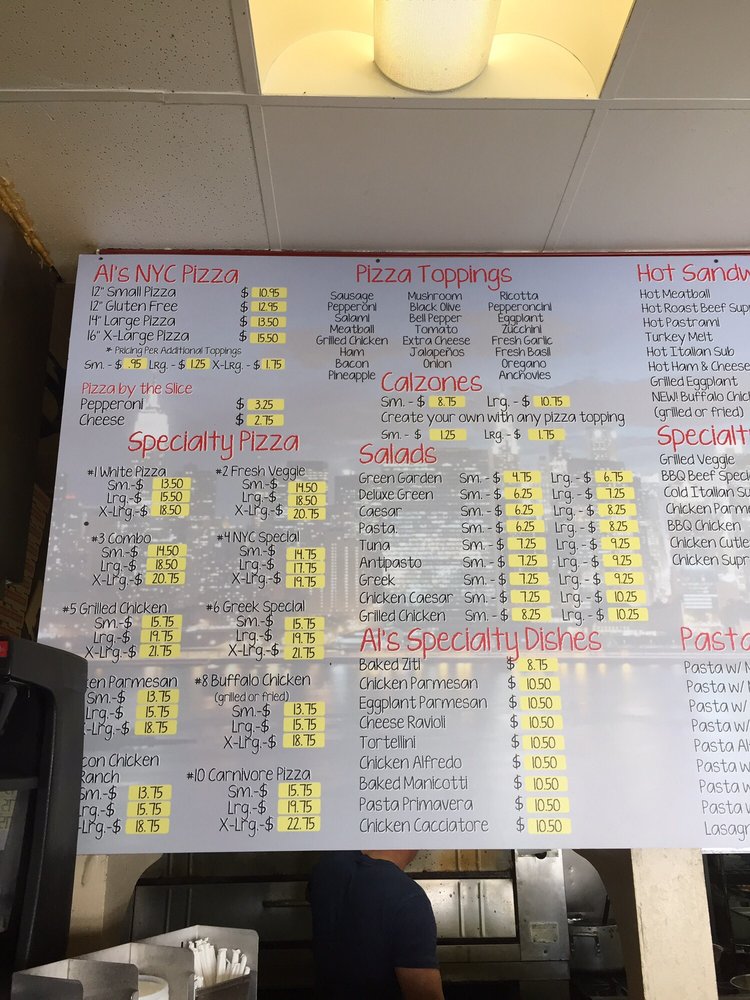 Al's NYC Pizza
12" Small Pizza $ 10.95
12" Gluten Free $ 12.95
14" Large Pizza $ 13.50
16" X-Large Pizza $ 15.50
* Pricing Per Additional Toppings
Sm. - $ .95 Lrg. - $ 1.25 X-Lrg. - $ 1.75
Pizza by the Slice
Pepperoni $ 3.25
Cheese $ 2.75
Specialty Pizza
#1 White Pizza
Sm.-$ 13.50
Lrg.-$ 15.50
X-Lrg.-$ 18.50
#2 Fresh Veggie
Sm.-$ 14.50
Lrg.-$ 18.50
X-Lrg.-$ 20.75
#3 Combo
Sm.-$ 14.50
Lrg.-$ 18.50
X-Lrg.-$ 20.75
#4 NYC Special
Sm.-$ 14.75
Lrg.-$ 17.75
X-Lrg.-$ 19.75
#5 Grilled Chicken
Sm.-$ 15.75
Lrg.-$ 19.75
X-Lrg.-$ 21.75
#6 Greek Special
Sm.-$ 15.75
Lrg.-$ 19.75
X-Lrg.-$ 21.75
ken Parmesan
Sm.-$ 13.75
Lrg.-$ 15.75
X-Lrg.-$ 18.75
#8 Buffalo Chicken
(grilled or fried)
Sm.-$ 13.75
Lrg.-$ 15.75
X-Lrg.-$ 18.75
con Chicken
Ranch
Sm.-$ 13.75
Lrg.-$ 15.75
X-Lrg.-$ 18.75
#10 Carnivore Pizza
Sm.-$ 15.75
Lrg.-$ 19.75
X-Lrg.-$ 22.75
Pizza Toppings
Sausage Mushroom Ricotta
Pepperoni Black Olive Pepperoncini
Salami Bell Pepper Eggplant
Meatball Tomato Zucchini
Grilled Chicken Extra Cheese Fresh Garlic
Ham Jalapeños Fresh Basil
Bacon Onion Oregano
Pineapple Anchovies
Calzones
Sm. - $ 8.75 Lrg. - $ 10.75
Create your own with any pizza topping
Sm. - $ 1.25 Lrg. - $ 1.75
Salads
Green Garden Sm. - $ 4.75 Lrg. - $ 6.75
Deluxe Green Sm. - $ 6.25 Lrg. - $ 7.25
Caesar Sm. - $ 6.25 Lrg. - $ 8.25
Pasta. Sm. - $ 6.25 Lrg. - $ 8.25
Tuna Sm. - $ 7.25 Lrg. - $ 9.25
Antipasto Sm. - $ 7.25 Lrg. - $ 9.25
Greek Sm. - $ 7.25 Lrg. - $ 9.25
Chicken Caesar Sm. - $ 7.25 Lrg. - $ 10.25
Grilled Chicken Sm. - $ 8.25 Lrg. - $ 10.25
Al's Specialty Dishes
Baked Ziti $ 8.75
Chicken Parmesan $ 10.50
Eggplant Parmesan $ 10.50
Cheese Ravioli $ 10.50
Tortellini $ 10.50
Chicken Alfredo $ 10.50
Baked Manicotti $ 10.50
Pasta Primavera $ 10.50
Chicken Cacciatore $ 10.50
Hot Sandw
Hot Meatball
Hot Roast Beef Sup
Hot Pastrami
Turkey Melt
Hot Italian Sub
Hot Ham & Cheese
Grilled Eggplant
NEW! Buffalo Chick
(grilled or fried)
Specialt
Grilled Veggie
BBQ Beef Specia
Cold Italian Su
Chicken Parme
BBQ Chicken
Chicken Cutle
Chicken Supr
Pasta
Pasta w/ M
Pasta w/
Pasta w/
Pasta w/
Pasta Al
Pasta w
Pasta w
Pasta w
Lasagn